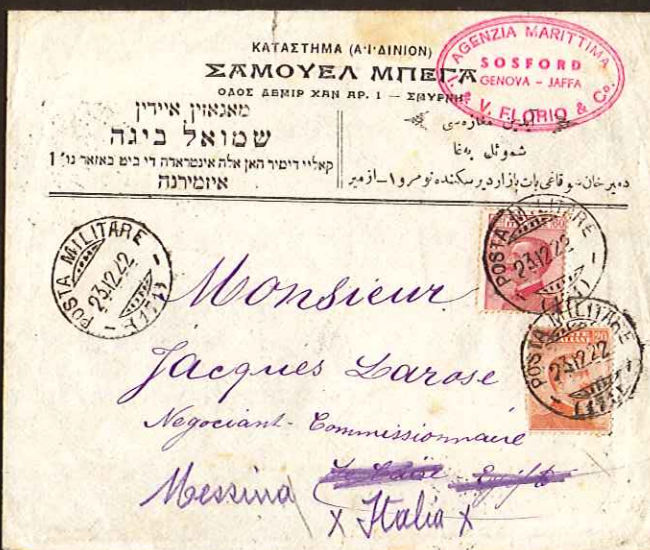 ΚΑΤΑΣΤΗΜΑ (Α·Ι·ΔΙΝΙΟΝ)
ΣΑΜΟΥΕΛ ΜΠΕΓΑ
ΟΔΟΣ ΔΕΜΙΡ ΧΑΝ ΑΡ. 1 — ΣΜΥΡΝΗ
AGENZIA MARITTIMA
SOSFORD
GENOVA - JAFFA
V. FLORIO & Co.
מאגאזין איידין
שמואל ביגה
קאליי דימיר האן אלה אינטראדה די ביט באזאר נו' 1
איזמירנה
آيدين مغازه سى
شموئل بەغا
دميرخان سوقاغى بات بازارى ديرسكنده نومرو ١ــ ازمير
POSTA MILITARE
23.12.22
POSTA MILITARE
23.12.22
POSTA MILITARE
23.12.22
20
Monsieur
Jacques Larose
Negociant-Commissionnaire
Messina
x Italia x